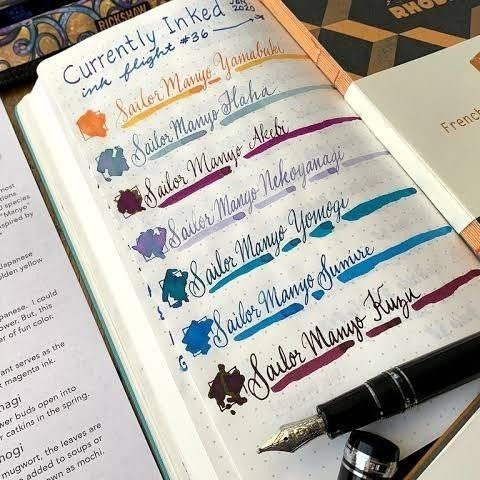 RICKSHAW
RHODIA
Currently Inked
JAN 2020
ink flight #36
Sailor Manyo Yamabuki
Sailor Manyo Haha
Sailor Manyo Akebi
Sailor Manyo Nekoyanagi
Sailor Manyo Yomogi
Sailor Manyo Sumire
Sailor Manyo Kuzu
French
most
tions.
species
"Manyo"
nspired by
Japanese
olden yellow
panese. I could
ower. But, this
er of fun color.
ant serves as the
t magenta ink.
nagi
wer buds open into
r catkins in the spring.
nogi
mugwort, the leaves are
e added to soups or
own as mochi.